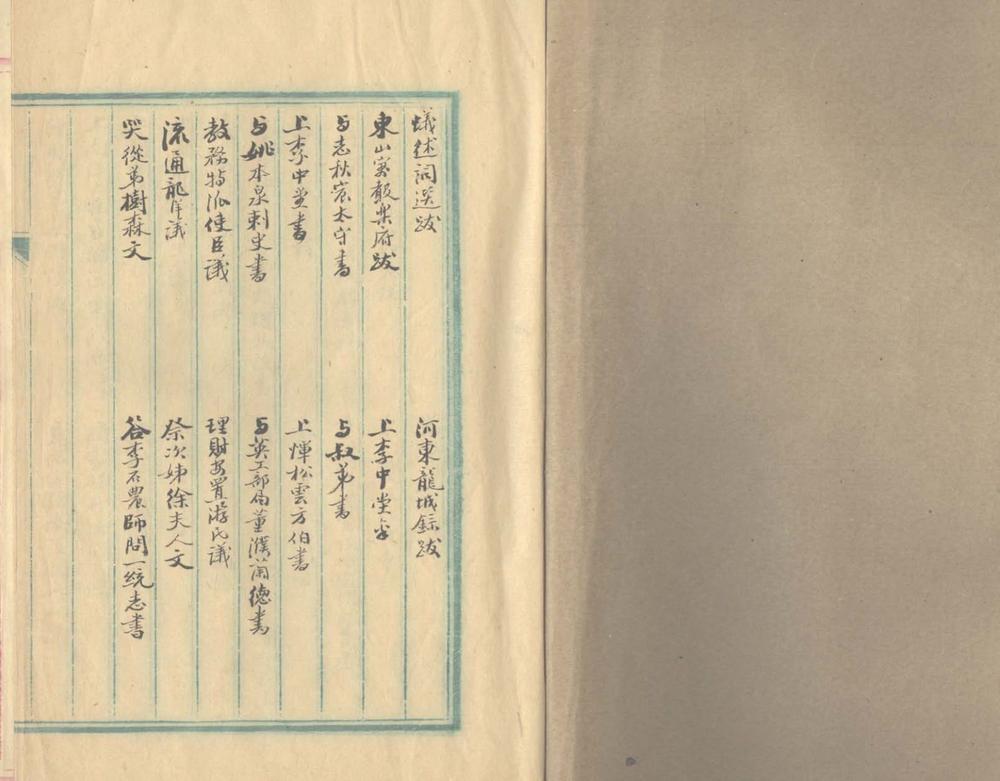 蟻述詞選跋　河東龍城錄跋
東山寓聲樂府跋　上李中堂書
与志秋宸太守書　与叔弟書
上李中堂書　上惲松雲方伯書
与姚本泉刺史書　与英工部局董濮蘭德書
教務特派使臣議　理財安置游民議
流通龍洋議　祭次姊徐夫人文
哭從弟樹森文　答李石農師問一統志書